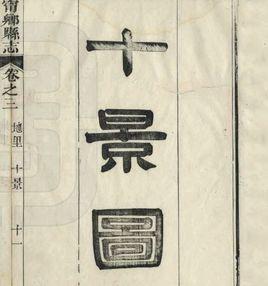 十景圖
甯鄉縣志
卷之三
地里 十景 十一